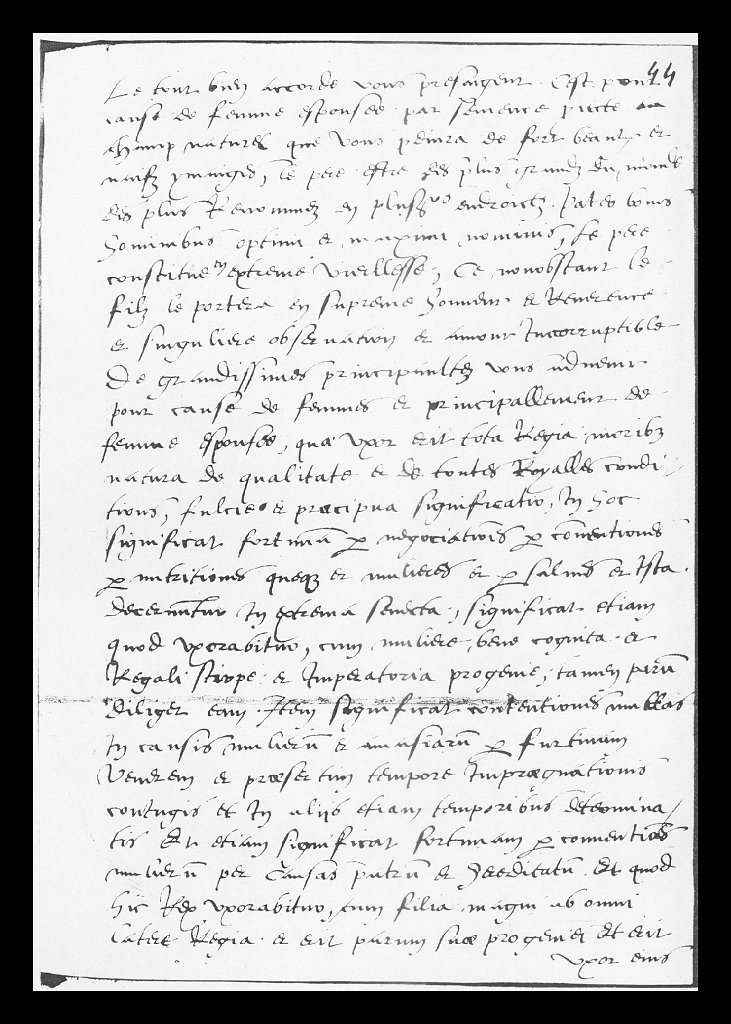 44
Le tout bien accorde vous presaigent. C'est pour
cause de femme esponsee par semence picte en
champ naturel que vous peindra de fort beaux et
naifz ymaiges, le pere estre des plus grandz du monde
des plus Renommez en plusrs endroictz. Pates bonis
hominibus optimi et maximi nominis, Le pere
constitue en extreme vieillesse, Ce nonobstant le
filz le portera en supreme honneur et Reverence
et singuliere observation et amour Incorruptible
De grandissimes principaultez vous advienr
pour cause de femmes et principallement de
femme esponsee, quæ uxor erit tota Regia moribz
natura de qualitate et de toutes Royalles condi/
tions, fulcieor præcipua significatio, In hoc
significat fortunã p negociatiões p conventiones
p nutritiones queqz et mulieres et p salmes et Ista
decernuntur In extrema senecta, significat etiam
quod uxorabitur, cum muliere, bene cognita et
Regali stirpe et Imperatoria progenie, tamen parũ
diliget eam. Item significat contentiones multas
In causis mulierũ et amasiarũ p furtiuam
Venerem et præsertim tempore Imprægnationis
coniugis et In aliis etiam temporibus determina/
tis Et etiam significat fortunam p conventiões
mulierũ per causas patrũ et Hereditatũ. Et quod
hic Rex uxorabitur, cum filia magni ab omni
latere Regia et erit parum suæ progeniei Et erit
uxor eius